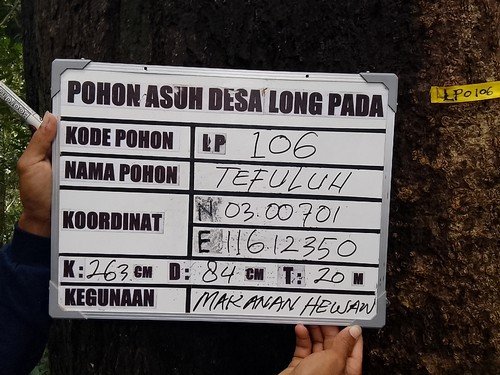 POHON ASUH DESA LONG PADA
KODE POHON LP 106
NAMA POHON TEFULUH
KOORDINAT N 03.00701
E 116.12350
K: 263 CM D: 84 CM T: 20 M
KEGUNAAN MAKANAN HEWAN
LP0106